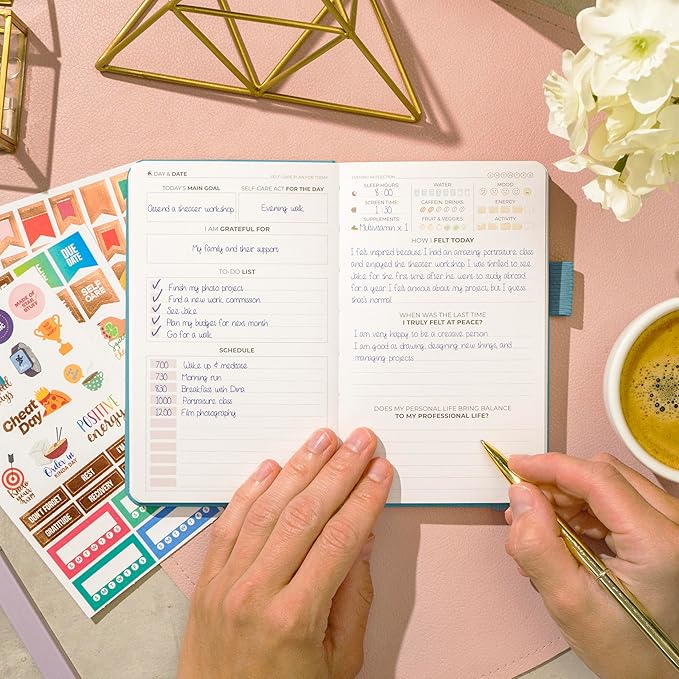 DAY & DATE
SELF-CARE PLAN FOR TODAY
TODAY'S MAIN GOAL
SELF-CARE ACT FOR THE DAY
Attend a theater workshop
Evening walk
I AM GRATEFUL FOR
My family and their support
TO-DO LIST
Finish my photo project
Find a new work commission
See Jake
Plan my budges for next month
Go for a walk
SCHEDULE
7:00 Wake up & meditate
7:30 Morning run
8:30 Breakfast with Dina
10:00 Portraiture class
12:00 Film photography
EVENING REFLECTION
SLEEP HOURS
8 : 00
WATER
MOOD
SCREEN TIME
1 : 30
CAFFEIN. DRINKS
ENERGY
SUPPLEMENTS
Multivitamin x 1
FRUIT & VEGGIES
ACTIVITY
HOW I FELT TODAY
I felt inspired because I had an amazing portraiture class
and enjoyed the theater workshop. I was thrilled to see
Jake for the first time after he went to study abroad
for a year. I felt anxious about my project, but I guess
that's normal.
WHEN WAS THE LAST TIME
I TRULY FELT AT PEACE?
I am very happy to be a creative person.
I am good at drawing, designing new things, and
managing projects
DOES MY PERSONAL LIFE BRING BALANCE
TO MY PROFESSIONAL LIFE?
DUE DATE
SELF CARE
MADE OF STAR STUFF
Cheat Day
POSITIVE energy
Order in
KINDA DAY
DON'T FORGET
REST
RECOVERY
GRATITUDE
S M T W T F S
S M T W T F S